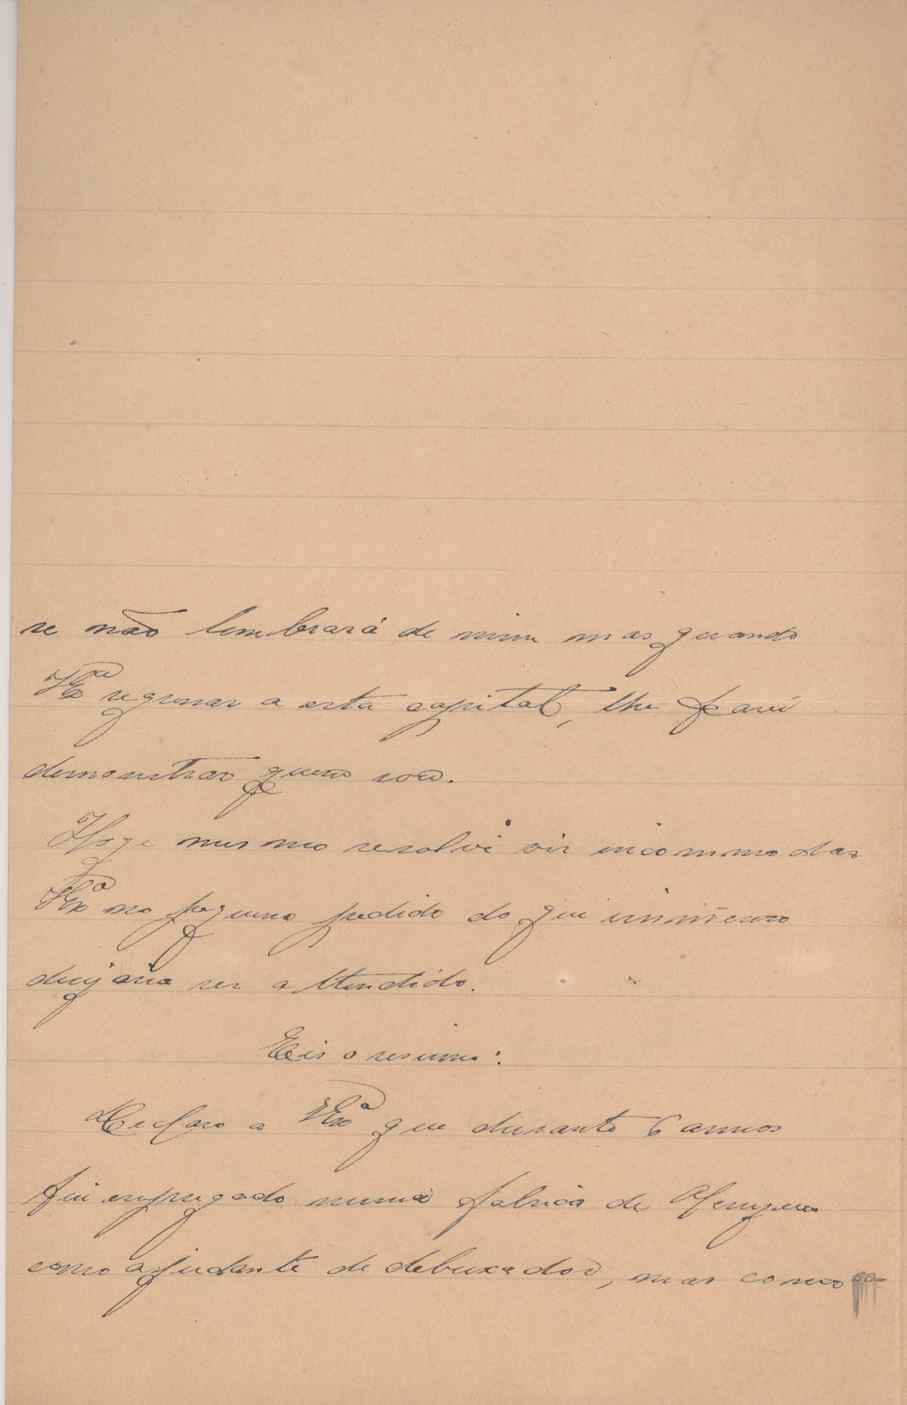 se não lembrará de mim mas quando
V Exª regressar a esta capital, lhe farei
demonstrar quem sou.
Hoje mesmo resolvi vir incommodar
V Exª no pequeno pedido do que immenso
dezejaria ser attendido.
Eis o resumo:
Declaro a V Exª que durante 6 annos
fui empregado numa fabrica de
como ajudante de debuxador, mas como